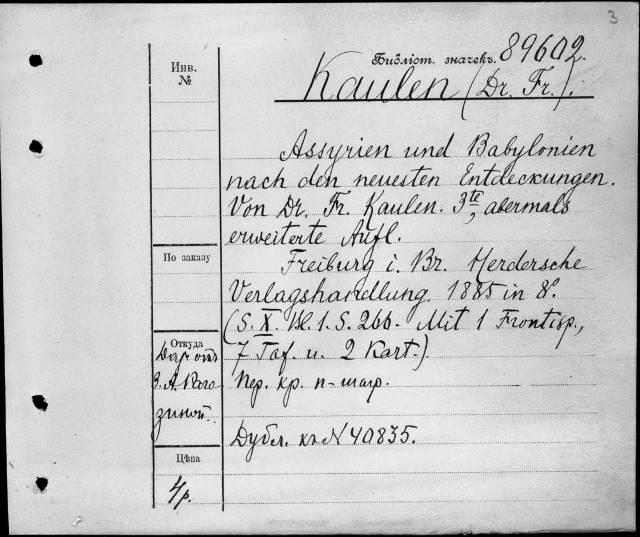 3
Библіот. значекъ. 89602.
Kaulen (Dr. Fr.).
Инв.
№
Assyrien und Babylonien
nach den neuesten Entdeckungen.
Von Dr. Fr. Kaulen. 3te, abermals
erweiterte Aufl.
По заказу
Freiburg i. Br. Herdersche
Verlagshandlung. 1885 in 8°.
(S. X. Bl. 1. S. 266. Mit 1 Frontisp.,
7 Taf. u. 2 Kart.)
Откуда
Даръ отъ
З. А. Раго
зиной.
Пер. кр. п-шагр.
Дубл. къ N 40835.
Цѣна
4р.